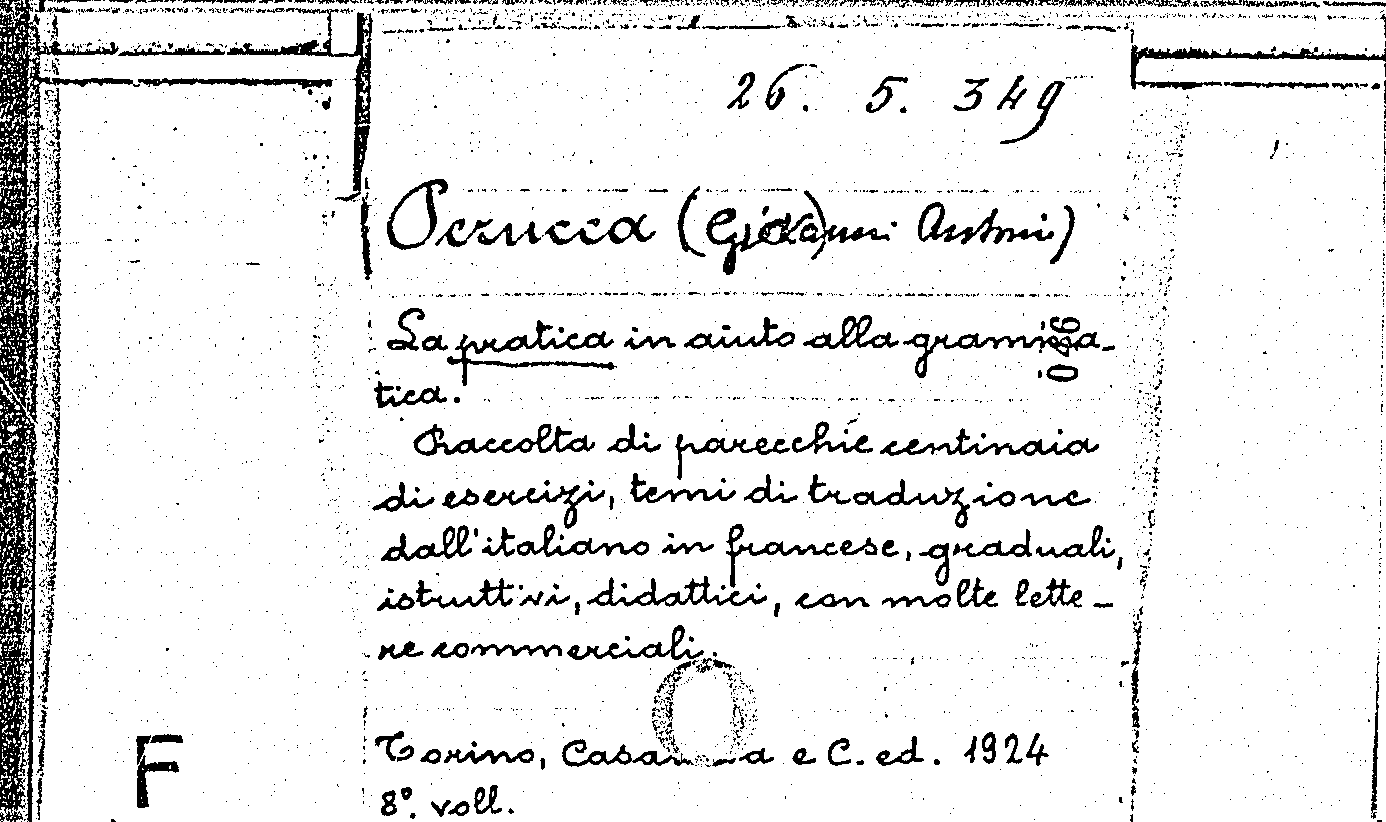 26. 5. 349
Perucca (Giovanni Antoni)
La pratica in aiuto alla gramma-
tica.
Raccolta di parecchie centinaia
di esercizi, temi di traduzione
dall'italiano in francese, graduali,
istruttivi, didattici, con molte lette-
re commerciali.
Torino, e C. ed. 1924
8º. voll.
F